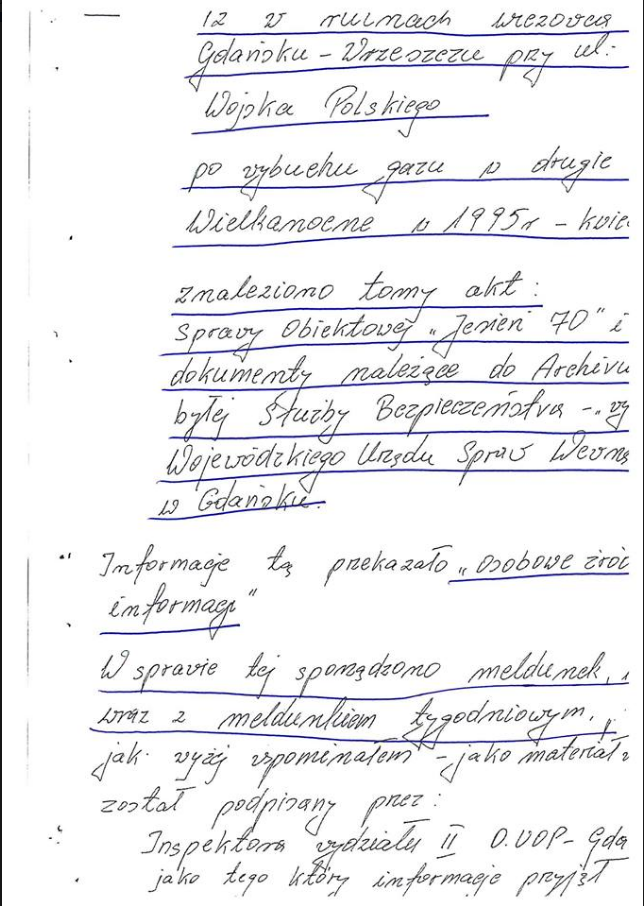 12 w ruinach wiezowca
Gdańsku - Wrzeszczu przy ul:
Wojska Polskiego
po wybuchu gazu w drugie
Wielkanocne w 1995r - kwie
znaleziono tomy akt :
Sprawy Obiektowej „Jesień 70" i
dokumenty należące do Archivu
byłej Służby Bezpieczeństwa - „wy
Wojewódzkiego Urzędu Spraw Wewnę
w Gdańsku.
Informacje tą przekazało „osobowe źród
informacji"
W spravie tej sporządzono meldunek,
wraz z meldunkiem tygodniowym,
jak wyżej wspominałem - jako materiał
został podpisany przez :
Inspektora wydziału II D.UOP - Gda
jako tego który informacje przyjął